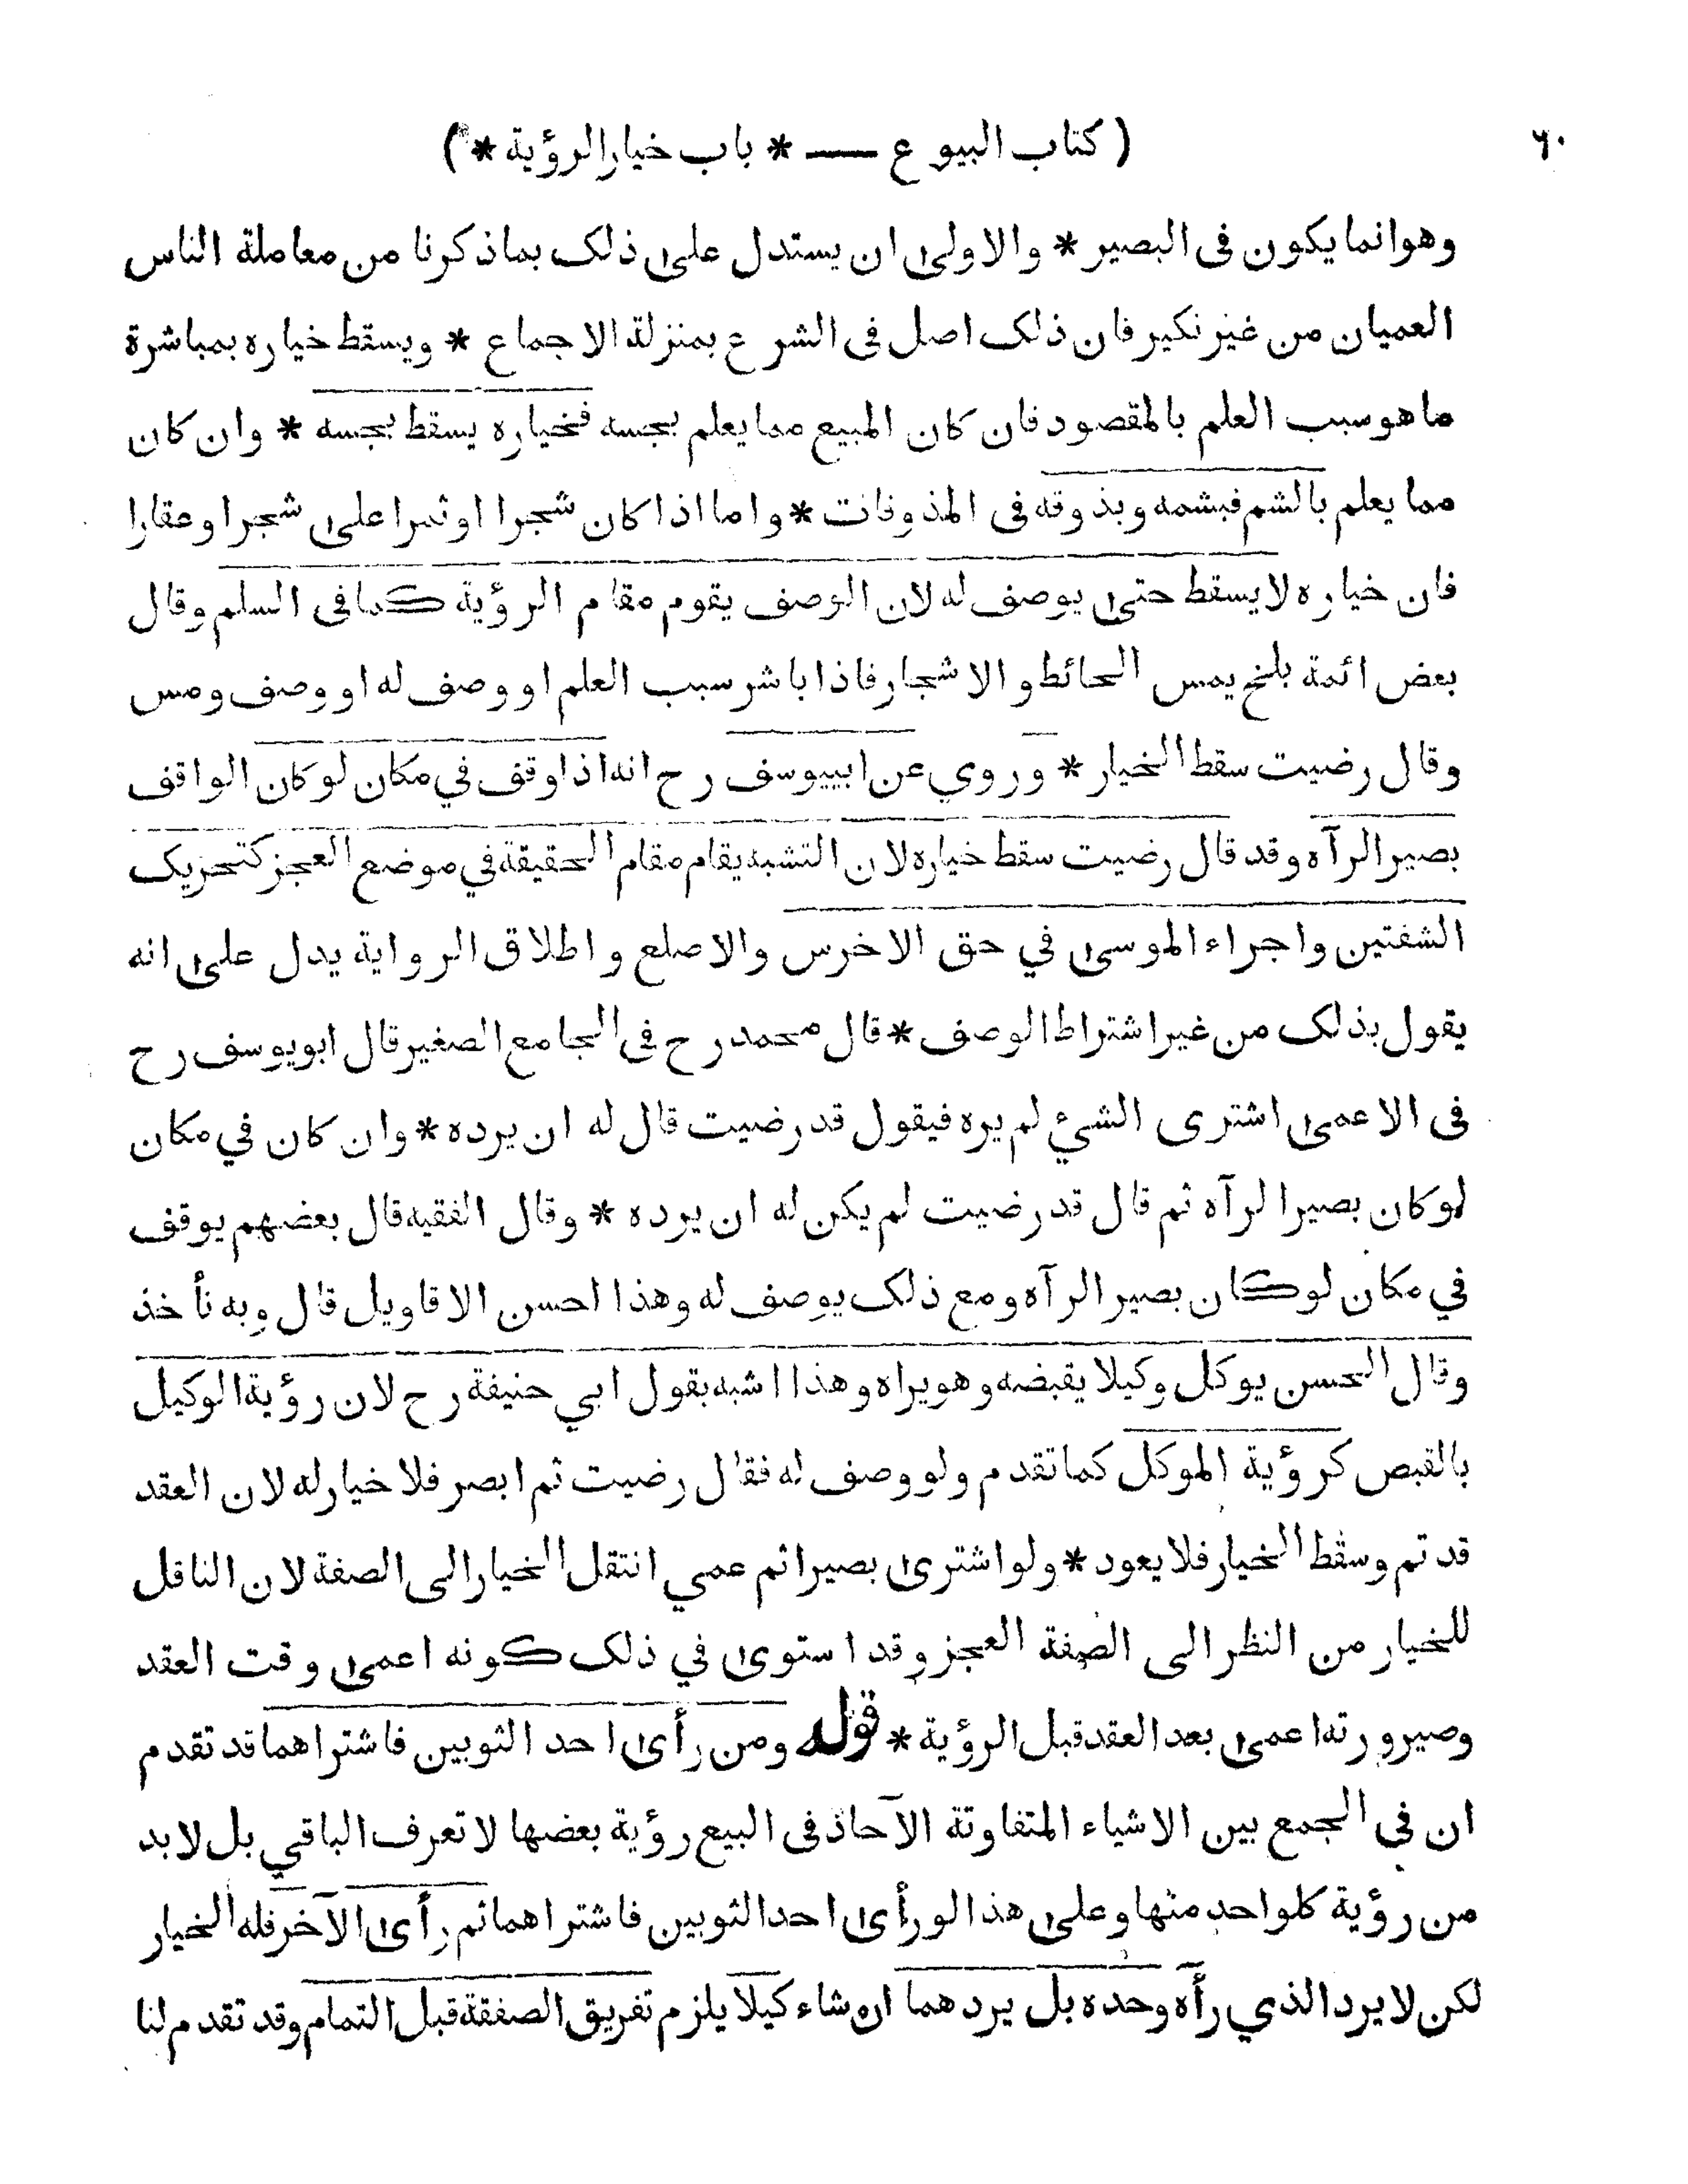 ٦٠
( كتاب البيوع — * باب خيار الرؤية * )
وهو انما يكون فى البصير * والاولى ان يستدل على ذلك بما ذكرنا من معاملة الناس
العميان من غير نكير فان ذلك اصل فى الشرع بمنزلة الاجماع * ويسقط خياره بمباشرة
ما هو سبب العلم بالمقصود فان كان المبيع مما يعلم بجسه فخياره يسقط بجسه * وان كان
مما يعلم بالشم فبشمه وبذوقه فى المذوقات * واما اذا كان شجرا او ثمرا على شجر او عقارا
فان خياره لا يسقط حتى يوصف له لان الوصف يقوم مقام الرؤية كما فى السلم وقال
بعض ائمة بلخ يمس الحائط و الاشجار فاذا باشر سبب العلم او وصف له او وصف ومس
وقال رضيت سقط الخيار * وروي عن ابييوسف رح انه اذا وقف في مكان لو كان الواقف
بصيرا لرآه وقد قال رضيت سقط خياره لان التشبه يقام مقام الحقيقة في موضع العجز كتحريك
الشفتين واجراء الموسى في حق الاخرس والاصلع و اطلاق الرواية يدل على انه
يقول بذلك من غير اشتراط الوصف * قال محمد رح فى الجامع الصغير قال ابويوسف رح
فى الاعمى اشترى الشئ لم يره فيقول قد رضيت قال له ان يرده * وان كان في مكان
لو كان بصيرا لرآه ثم قال قد رضيت لم يكن له ان يرده * وقال الفقيه قال بعضهم يوقف
في مكان لو كان بصيرا لرآه ومع ذلك يوصف له وهذا احسن الاقاويل قال وبه نأخذ
وقال الحسن يوكل وكيلا يقبضه وهو يراه وهذا اشبه بقول ابي حنيفة رح لان رؤية الوكيل
بالقبص كرؤية الموكل كما تقدم ولو وصف له فقال رضيت ثم ابصر فلا خيار له لان العقد
قد تم وسقط الخيار فلا يعود * ولو اشترى بصيرا ثم عمي انتقل الخيار الى الصفة لان الناقل
للخيار من النظر الى الصفة العجز وقد استوى في ذلك كونه اعمى وقت العقد
وصيرورته اعمى بعد العقد قبل الرؤية * قوله ومن رأى احد الثوبين فاشتراهما قد تقدم
ان في الجمع بين الاشياء المتفاوتة الآحاذ فى البيع رؤية بعضها لا تعرف الباقي بل لا بد
من رؤية كلواحد منها وعلى هذا لو رأى احد الثوبين فاشتراهما ثم رأى الآخر فله الخيار
لكن لا يرد الذي رآه وحده بل يردهما ان شاء كيلا يلزم تفريق الصفقة قبل التمام وقد تقدم لنا